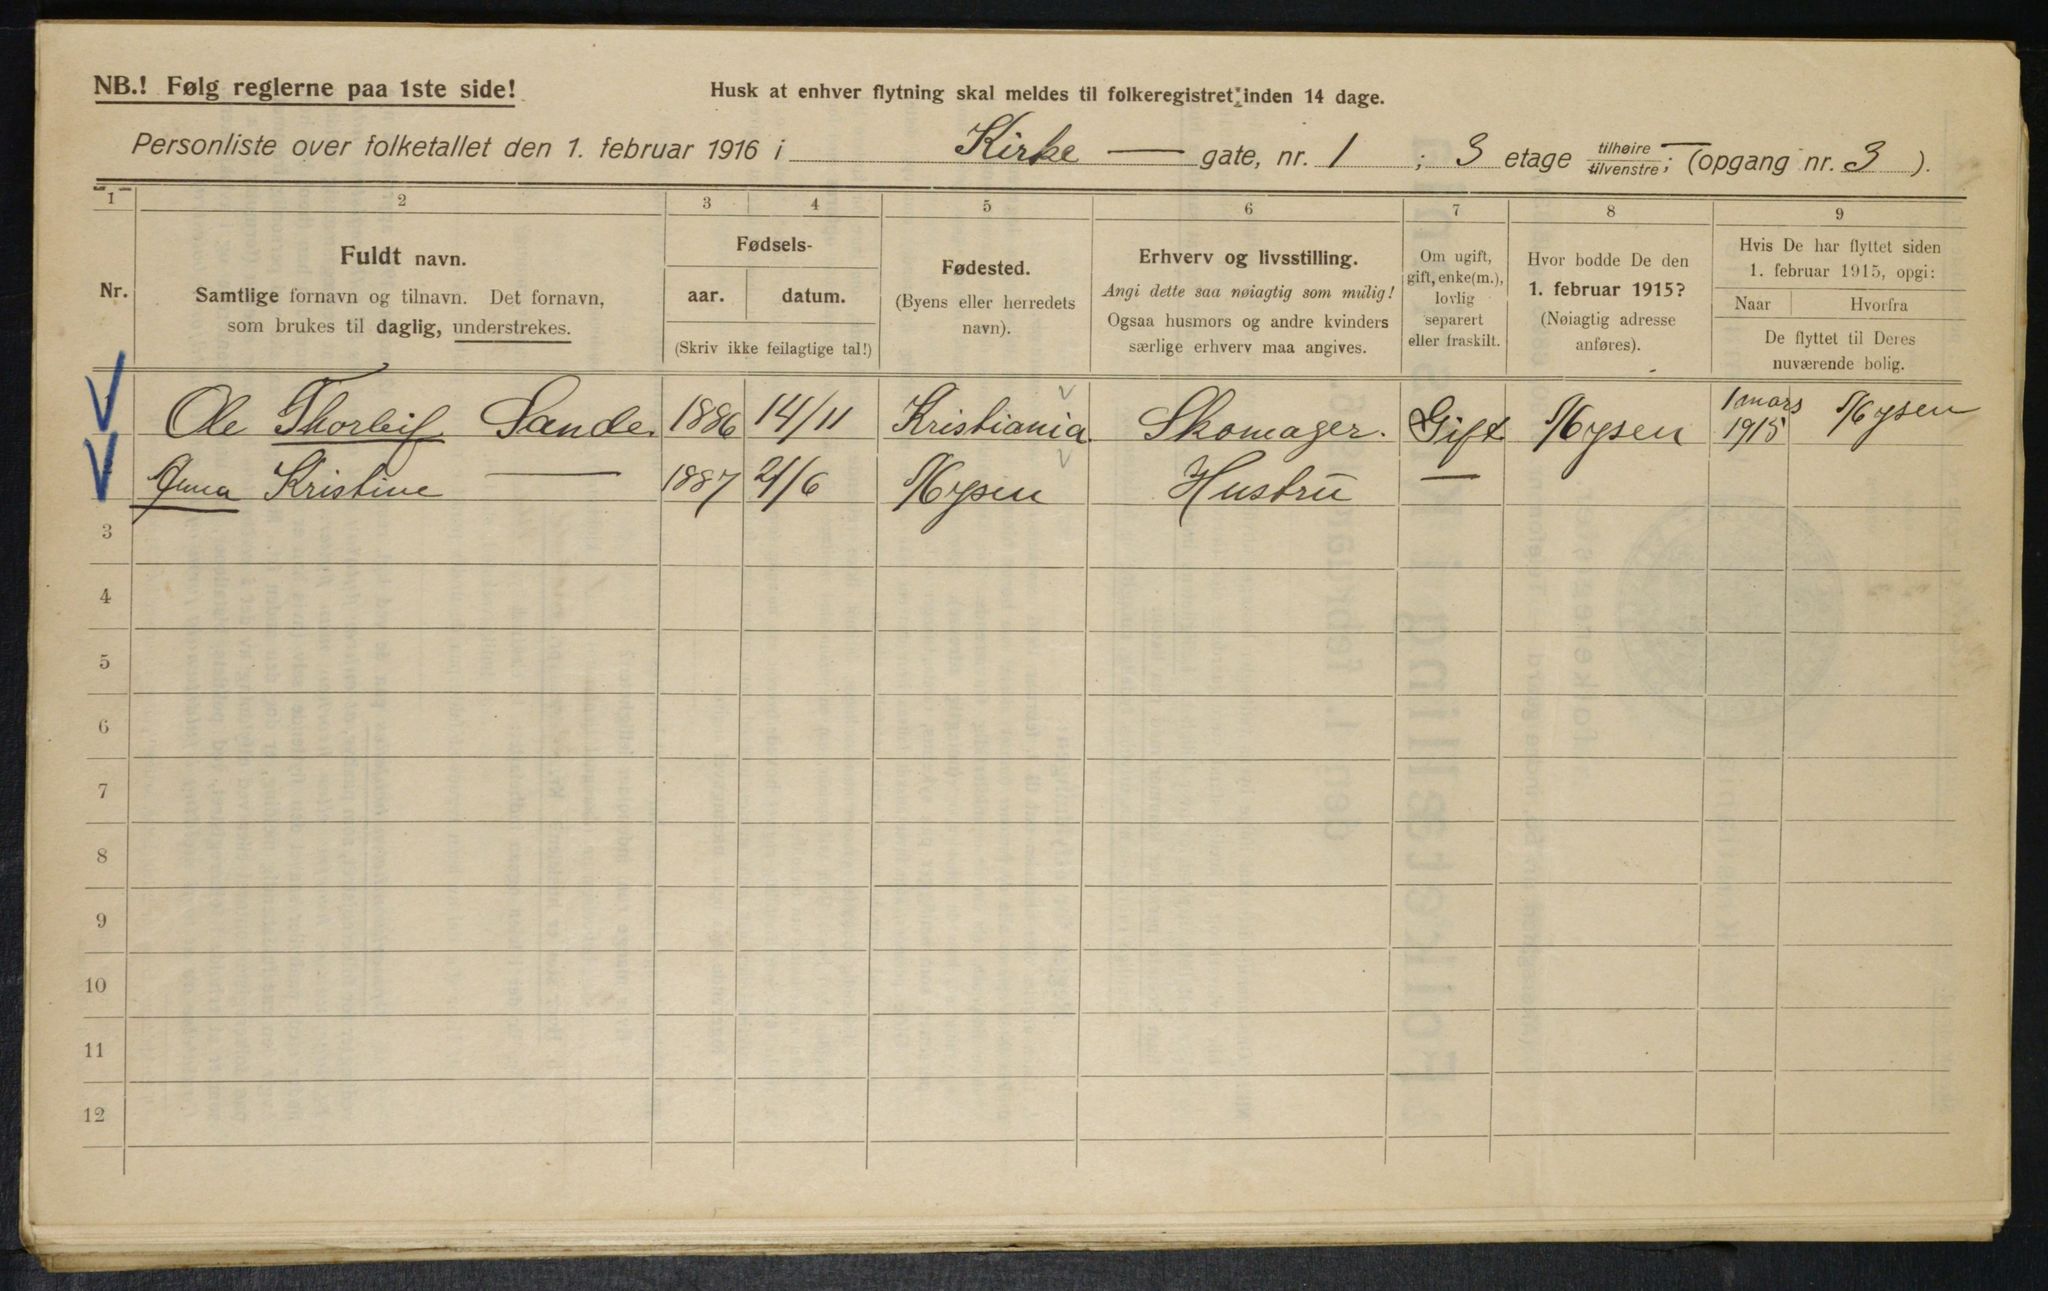 NB.! Følg reglerne paa 1ste side!
Husk at enhver flytning skal meldes til folkeregistret inden 14 dage.
Personliste over folketallet den 1. februar 1916 i Kirke — gate, nr. 1 ; 3 etage tilhøire/tilvenstre; (opgang nr. 3 ).
1 2 3 4 5 6 7 8 9
Nr.
Fuldt navn.
Samtlige fornavn og tilnavn. Det fornavn,
som brukes til daglig, understrekes.
Fødsels-
aar. datum.
(Skriv ikke feilagtige tal!)
Fødested.
(Byens eller herredets
navn).
Erhverv og livsstilling.
Angi dette saa nøiagtig som mulig!
Ogsaa husmors og andre kvinders
særlige erhverv maa angives.
Om ugift,
gift, enke(m.),
lovlig
separert
eller fraskilt.
Hvor bodde De den
1. februar 1915?
(Nøiagtig adresse
anføres).
Hvis De har flyttet siden
1. februar 1915, opgi:
Naar Hvorfra
De flyttet til Deres
nuværende bolig.
Ole Thorleif Sande. 1886 14/11 Kristiania. Skomager. Gift Mysen 1 mars 1915 Mysen
Anna Kristine — 1887 2/6 Mysen Hustru —
3
4
5
6
7
8
9
10
11
12